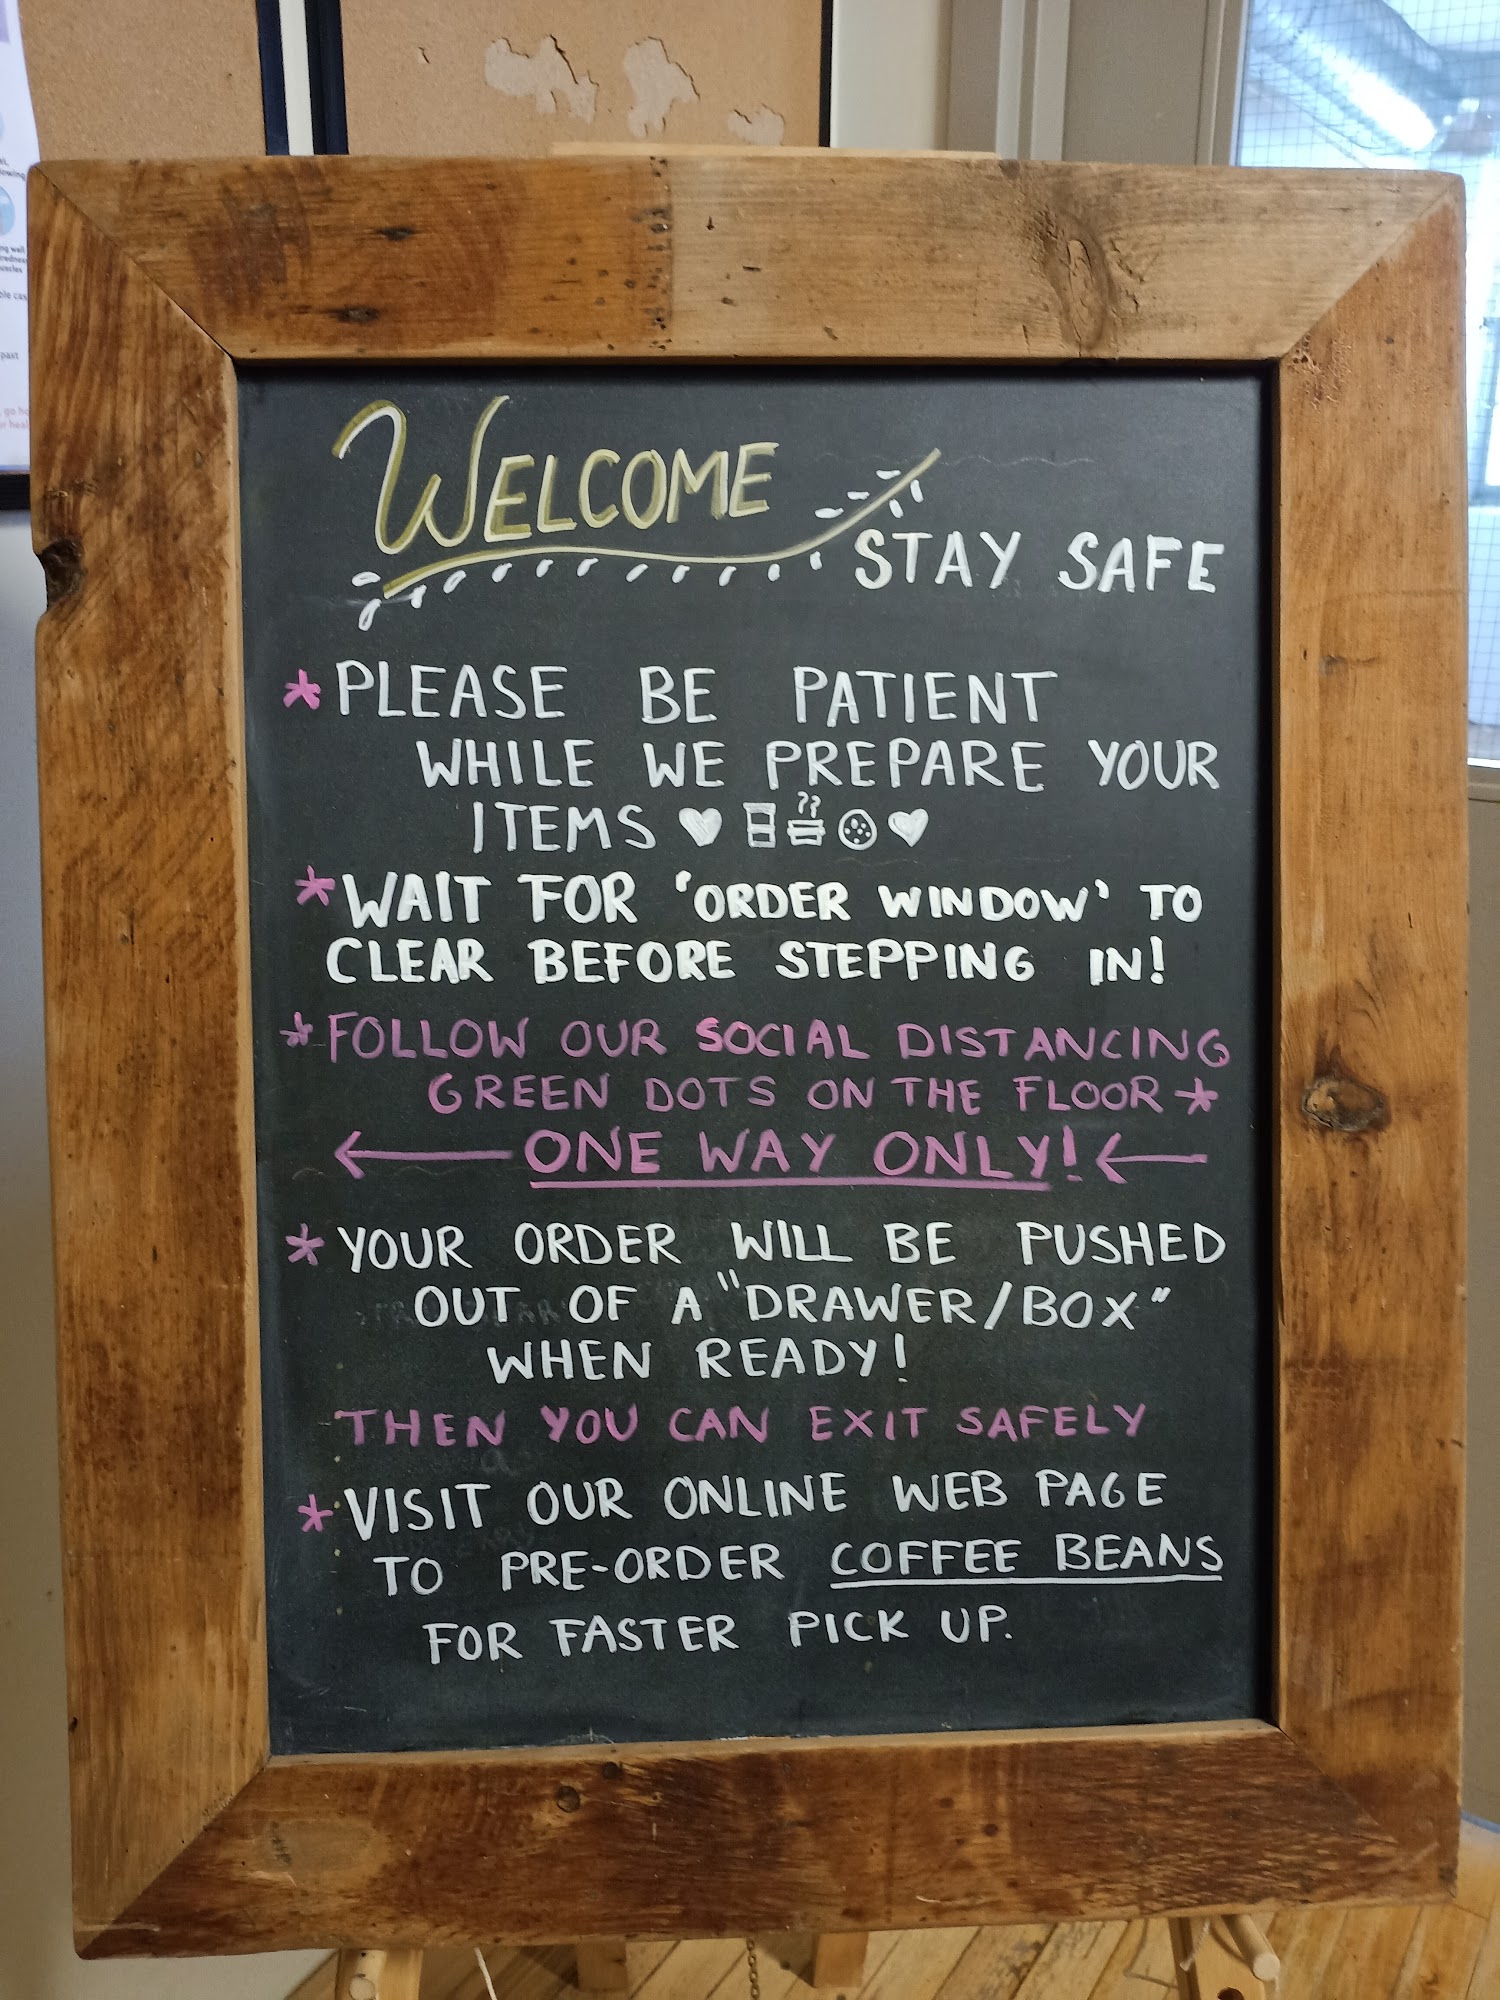 WELCOME
STAY SAFE
*PLEASE BE PATIENT
WHILE WE PREPARE YOUR
ITEMS
*WAIT FOR 'ORDER WINDOW' TO
CLEAR BEFORE STEPPING IN!
*FOLLOW OUR SOCIAL DISTANCING
GREEN DOTS ON THE FLOOR*
ONE WAY ONLY!
*YOUR ORDER WILL BE PUSHED
OUT OF A "DRAWER/BOX"
WHEN READY!
THEN YOU CAN EXIT SAFELY
*VISIT OUR ONLINE WEB PAGE
TO PRE-ORDER COFFEE BEANS
FOR FASTER PICK UP.
past